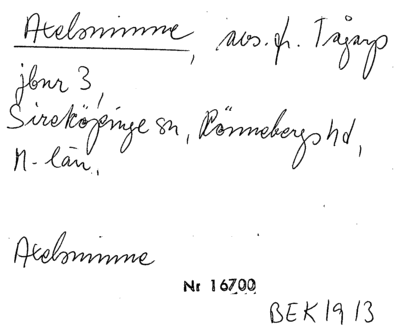 Axelsminne, avs. fr. Tågarp
jbnr 3,
Sireköpinge sn, Rönnebergs hd,
M-län.
Axelsminne
Nr 16700
BEK 1913